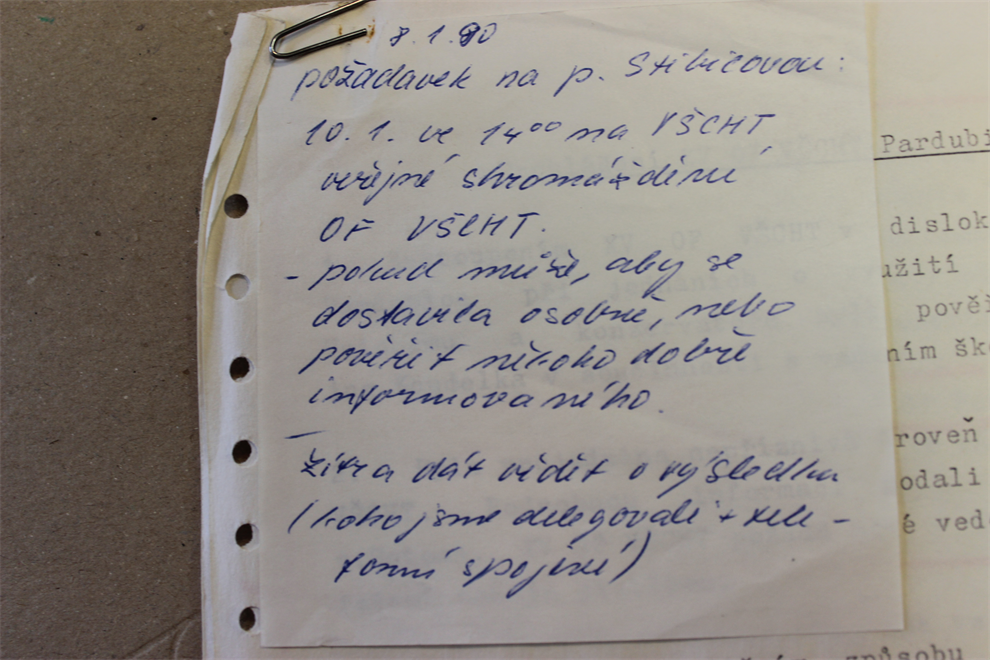 8.1.90
požadavek na p. Stibicovou:
10.1. ve 14⁰⁰ na VŠCHT
veřejné shromáždění
OF VŠCHT.
- pokud může, aby se
dostavila osobně, nebo
pověřit někoho dobře
informovaného.
—
Zítra dát vědět o výsledku
(koho jsme delegovali + tele-
fonní spojení)
Pardubi
dislok
užití
pověi
ním ško
roveň
odali
é vedo
způsobu